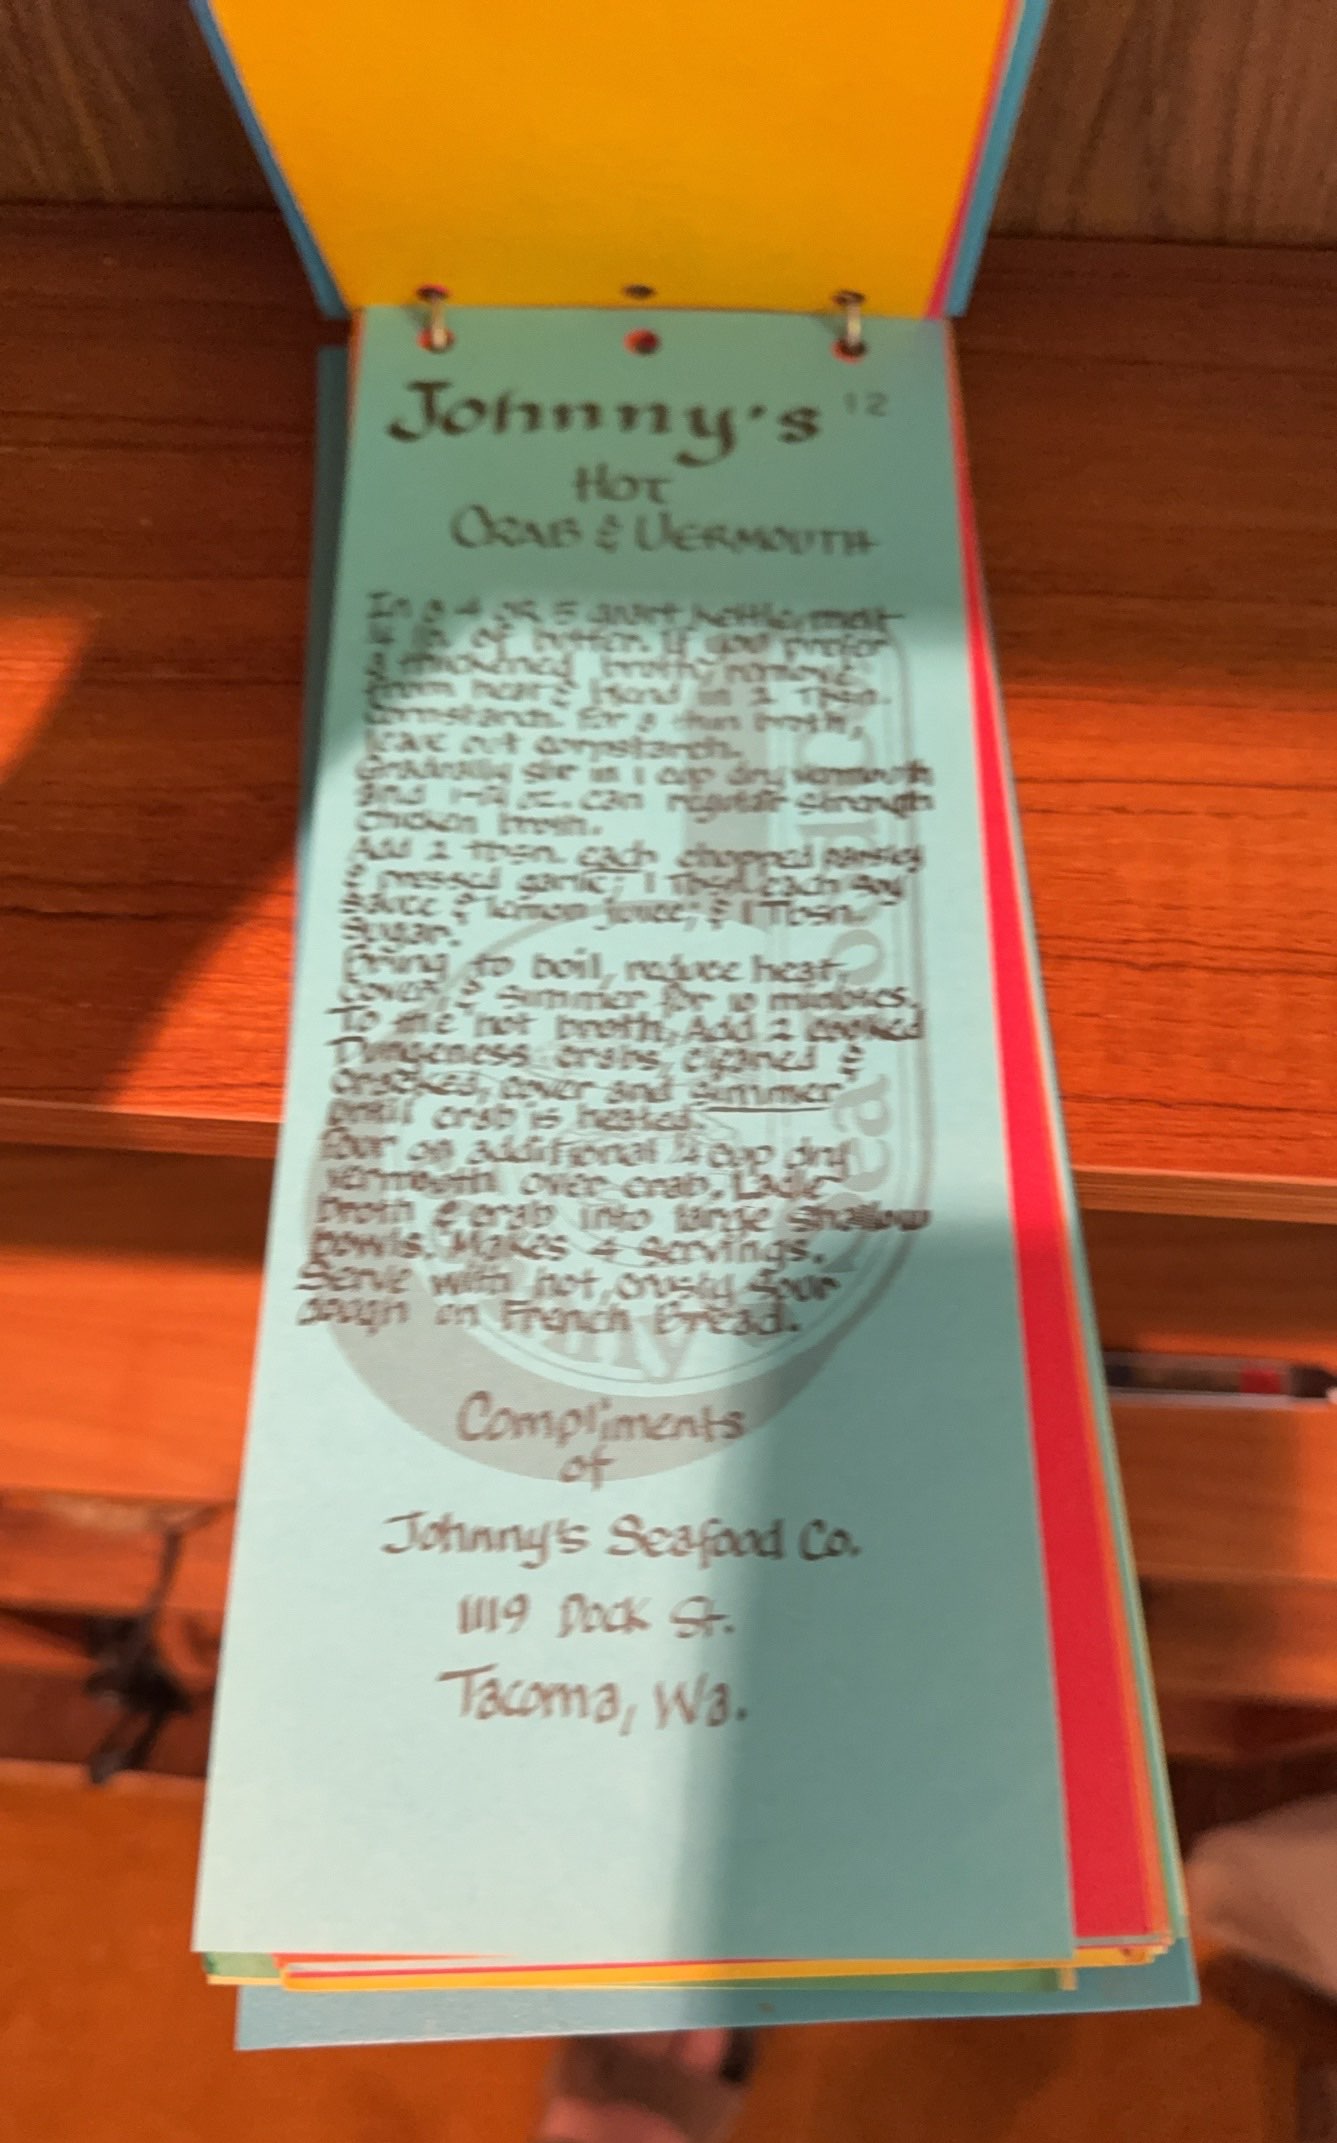 Johnny's 12
Hot
Crab & Vermouth
In a 4 or 5 quart kettle, melt
lb of butter. If you prefer
a thickened broth, remove
from heat & blend in 2 Tbsn.
cornstarch. For a thin broth,
leave out cornstarch.
Gradually stir in 1 cup dry vermouth
and oz. can regular strength
chicken broth.
Add 2 Tbsn. each chopped parsley
& pressed garlic; 1 Tbsn. each soy
sauce & lemon juice; & 1 Tbsn.
sugar.
Bring to boil, reduce heat,
cover, & simmer for 10 minutes.
To the hot broth, Add 2 cooked
Dungeness crabs, cleaned &
cracked, cover and simmer
until crab is heated.
Pour an additional ¼ cup dry
vermouth over crab. Ladle
broth & crab into large shallow
bowls. Makes 4 servings.
Serve with hot, crusty Sour
dough on French Bread.
Compliments
of
Johnny's Seafood Co.
1119 Dock St.
Tacoma, Wa.